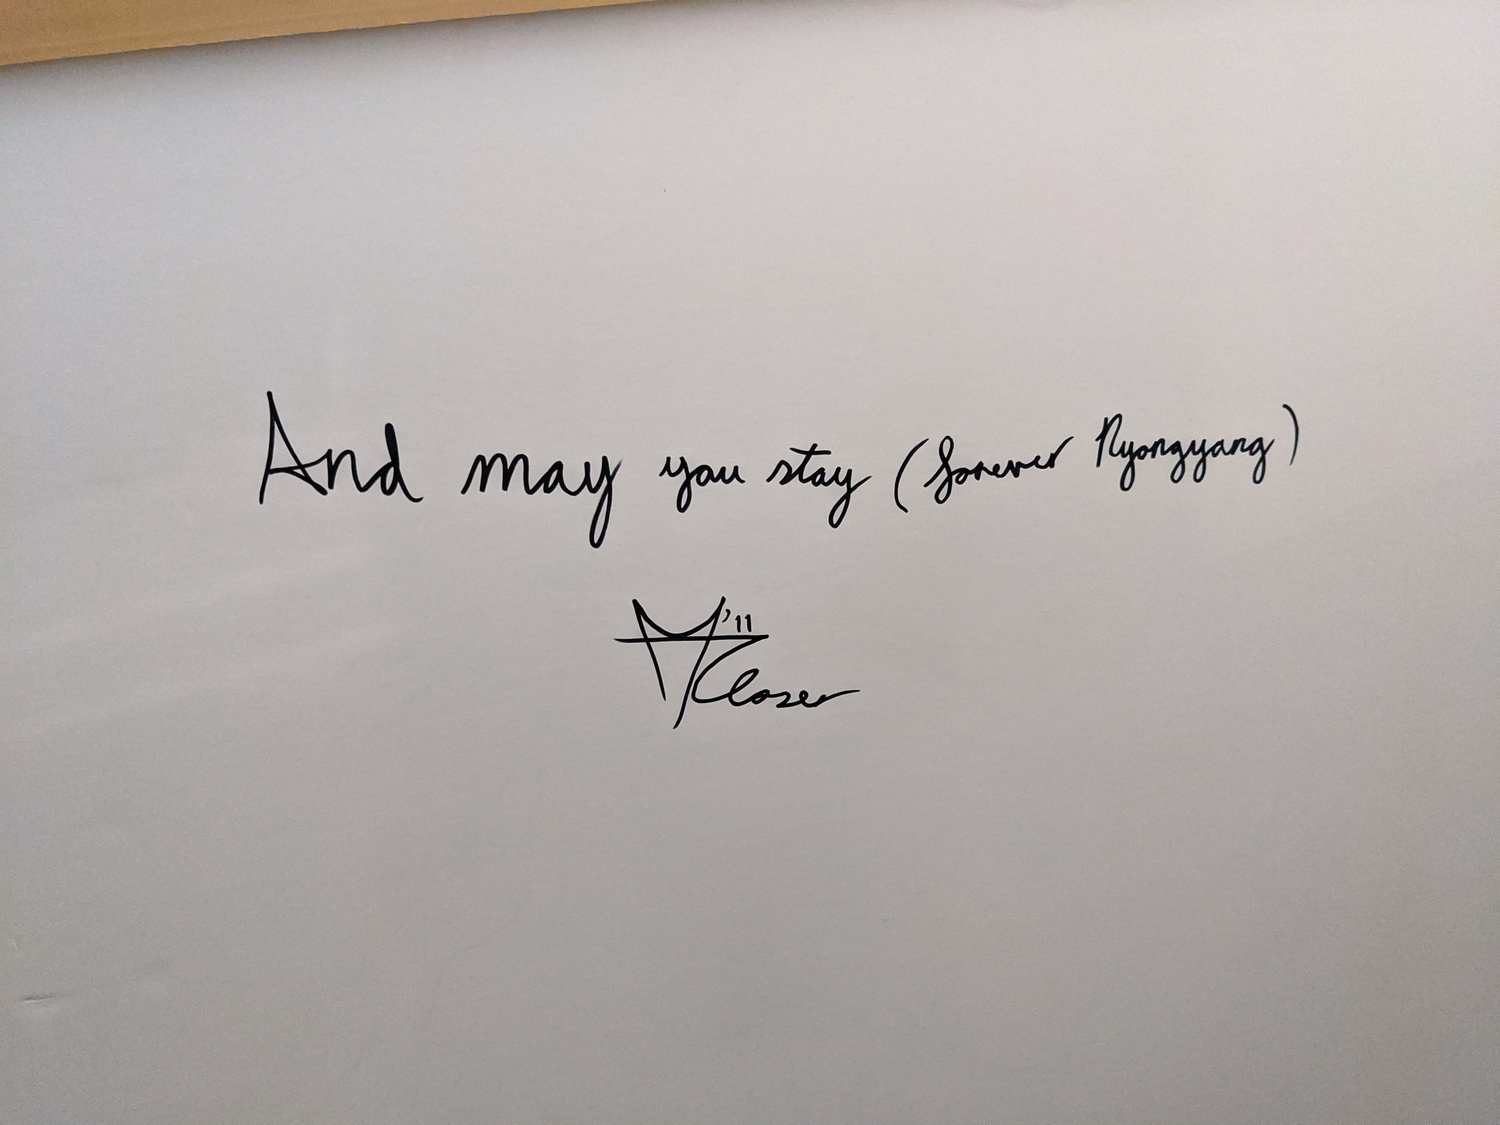 And may you stay (forever Ryongyang)
'11
Closer